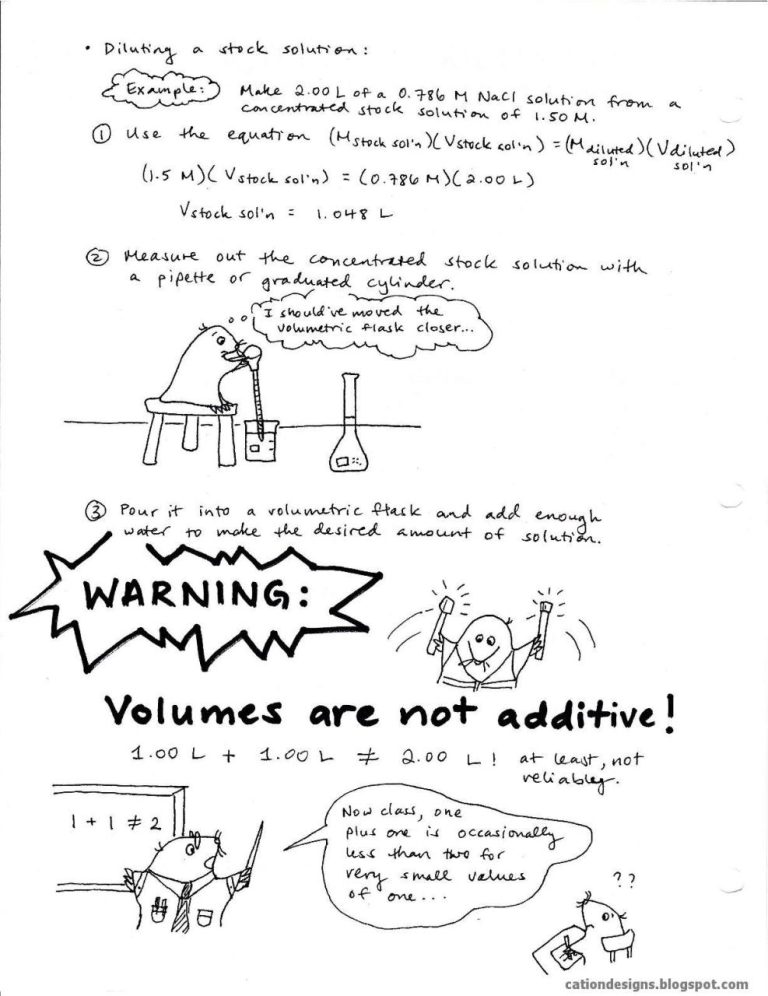 • Diluting a stock solution:
Example:
Make 2.00 L of a 0.786 M NaCl solution from a
concentrated stock solution of 1.50 M.
① Use the equation (Mstock sol'n)(Vstock sol'n) = (Mdiluted sol'n)(Vdiluted sol'n)
(1.5 M)(Vstock sol'n) = (0.786 M)(2.00 L)
Vstock sol'n = 1.048 L
② Measure out the concentrated stock solution with
a pipette or graduated cylinder.
I should've moved the
volumetric flask closer...
③ Pour it into a volumetric flask and add enough
water to make the desired amount of solution.
WARNING:
Volumes are not additive!
1.00 L + 1.00 L ≠ 2.00 L! at least, not
reliably.
1 + 1 ≠ 2
Now class, one
plus one is occasionally
less than two for
very small values
of one...
??
cationdesigns.blogspot.com